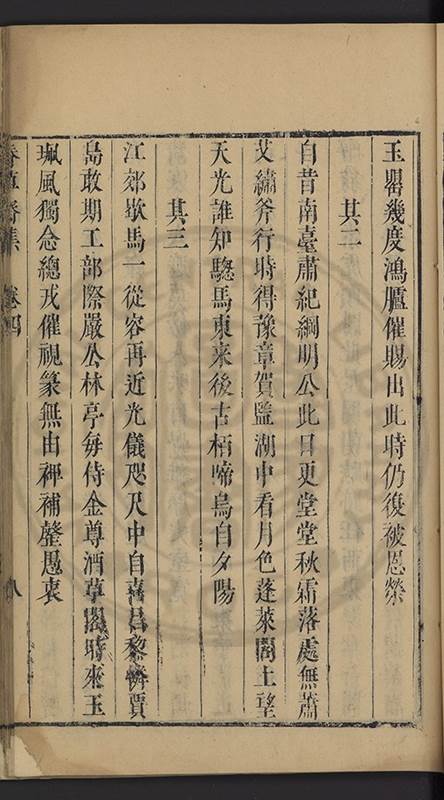 玉罍幾度鴻臚催賜出此時仍復被恩榮
其二
自昔南臺肅紀綱明公此日更堂堂秋霜落處無蕭
艾繡斧行時得豫章賀監湖中看月色蓬萊閣上望
天光誰知驄馬東來後古栢啼烏自夕陽
其三
江郊歇馬一從容再近光儀咫尺中自喜昌黎憐賈
島敢期工部際嚴公林亭每侍金尊酒草閣時來玉
珮風獨念總戎催視篆無由裨補罄愚衷
集 卷四 八